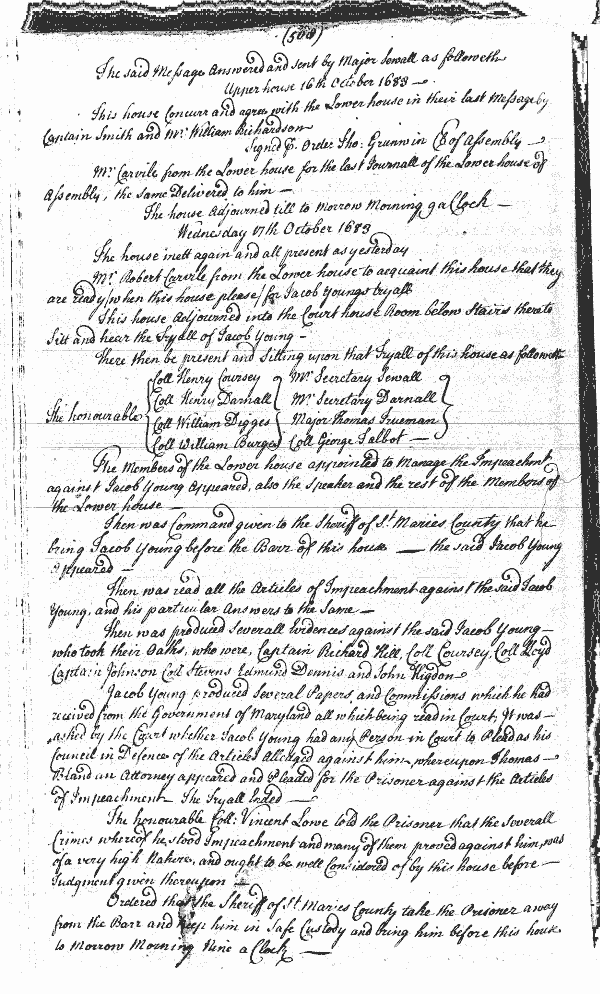 (508)
The said Message Answered and sent by Major Sewall as followeth
Upper house 16th October 1683 —
This house Concurr and agree with the Lower house in their last Message by
Captain Smith and Mr. William Richardson
Signed P. Order Tho: Grunwin Cl of Assembly —
Mr. Carvile from the Lower house for the last Journall of the Lower house of
Assembly, the same Delivered to him —
The house Adjourned till to Morrow Morning 9 a Clock —
Wednesday 17th October 1683
The house mett again and all present as yesterday
Mr. Robert Carvile from the Lower house to acquaint this house that they
are ready (when this house please) for Jacob Youngs tryall
This house Adjourned into the Court house Room below Stairs there to
Sitt and hear the Tryall of Jacob Young —
There then be present and Sitting upon that Tryall of this house as followeth
Coll Henry Coursey Mr. Secretary Sewall
Coll Henry Darnall Mr. Secretary Darnall
The honourable Coll William Digges Major Thomas Trueman
Coll William Burges Coll George Talbot —
The Members of the Lower house appointed to Manage the Impeachment
against Jacob Young Appeared, also the Speaker and the rest of the Members of
the Lower house —
Then was Command given to the Sheriff of St. Maries County that he
bring Jacob Young before the Barr of this house — the said Jacob Young
Appeared —
Then was read all the Articles of Impeachment against the said Jacob
Young, and his particular Answers to the Same —
Then was produced Severall Evidences against the said Jacob Young —
who took their Oaths, who were, Captain Richard Hill, Coll Coursey, Coll Lloyd
Captain Johnson Coll Stevens Edmund Dennis and John Higdon
Jacob Young produced Several Papers, and Commissions which he had
received from the Government of Maryland all which being read in Court, It was —
asked by the Court whether Jacob Young had any Person in Court to Plead as his
Council in Defence of the Articles Alledged against him, whereupon Thomas —
Bland an Attorney appeared and Pleaded for the Prisoner against the Articles
of Impeachment The Tryall Ended —
The honourable Coll: Vincent Lowe told the Prisoner that the Severall
Crimes whereof he stood Impeachment and many of them proved against him, was
of a very high Nature, and ought to be well Considered of by this house before —
Judgment given thereupon —
Ordered that the Sheriff of St. Maries County take the Prisoner away
from the Barr and keep him in Safe Custody and bring him before this house
to Morrow Morning Nine a Clock —